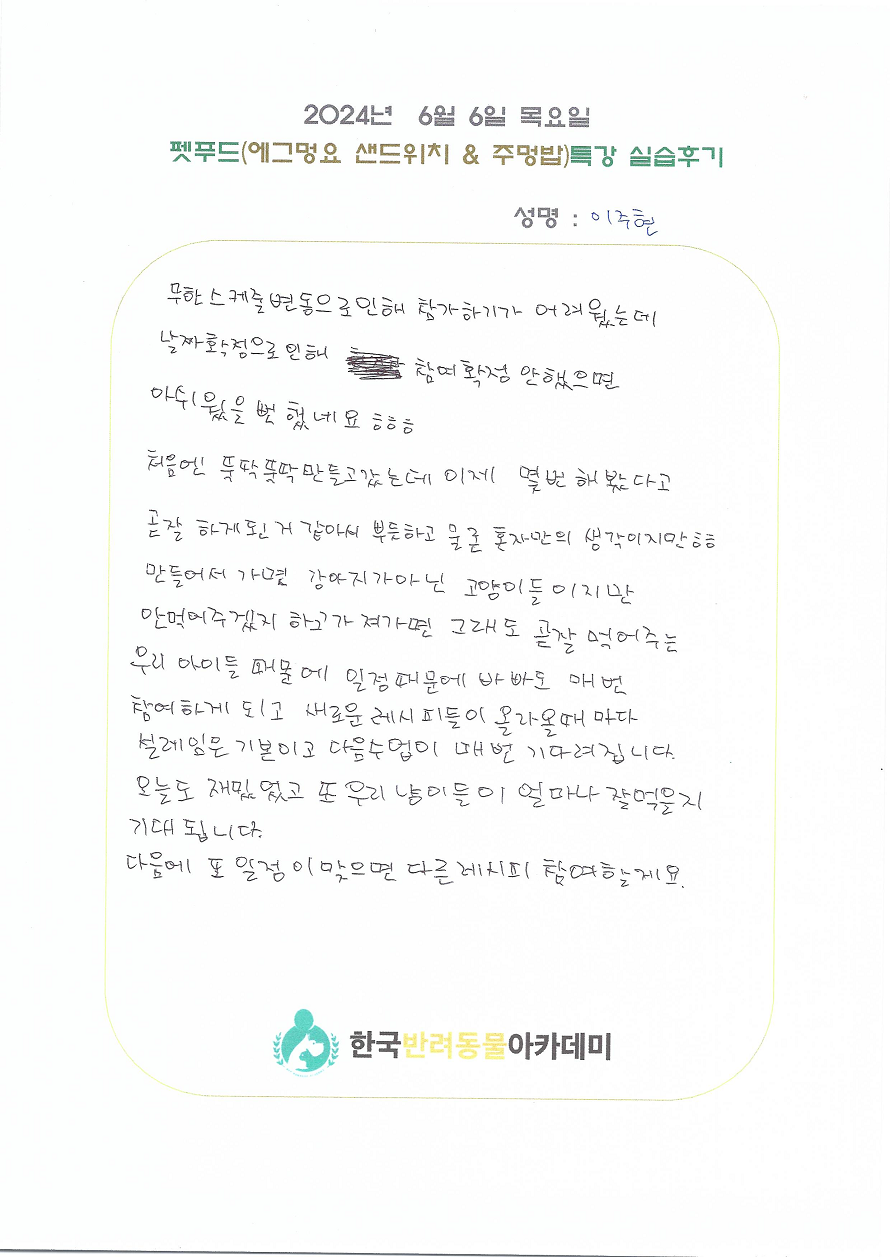 2024년 6월 6일 목요일
펫푸드(에그멍요 샌드위치 & 주멍밥)특강 실습후기
성명 : 이주현
무한스케줄변동으로인해 참가하기가 어려웠는데
날짜확정으로인해 참여확정 안했으면
아쉬웠을 뻔 했네요 ㅎㅎㅎ
처음엔 뚝딱뚝딱만들고갔는데 이제 몇번 해봤다고
곧잘 하게된거 같아서 뿌듯하고 물론 혼자만의 생각이지만ㅎㅎ
만들어서 가면 강아지가아닌 고양이들이지만
안먹어주겠지 하고가져가면 그래도 곧잘 먹어주는
우리 아이들 때문에 일정때문에 바빠도 매번
참여하게 되고 새로운 레시피들이 올라올때 마다
설레임은 기본이고 다음수업이 매번 기다려집니다.
오늘도 재밌었고 또 우리 냥이들이 얼마나 잘먹을지
기대 됩니다.
다음에 또 일정이맞으면 다른레시피 참여할게요.
한국반려동물아카데미